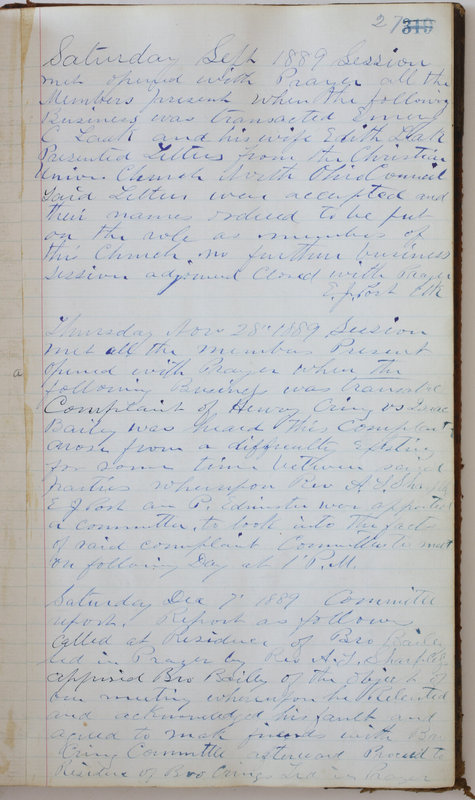 27 319
Saturday Sept 1889 Session
met opened with Prayer all the
Members present when the following
Business was transacted Emery
C Lack and his wife Edith Lack
Presented Letters from the Christian
Union Church North Ohio Council
Said Letters were accepted and
their names ordered to be put
on the role as members of
this Church no further business
Session adjorned Closed with Prayer
E. J. Post Clk
Thursday Nov 28" 1889 Session
met all the members Present
opened with Prayer when the
following Business was transacted
Complaint of Henry Cring vs Isaac
Bailey was heard this Complaint
arose from a difficulty Existing
for some time between said
parties whereupon Rev A. F.
E J Post an P. Edminster were appointed
a committee to look into the facts
of said complaint Committee to meet
on following Day at 1 P.M.
Saturday Dec 7" 1889 Committee
report. Report as follows
Called at Residence of Bro Bailey
led in Prayer by Rev A. F.
apprised Bro Bailey of the object of
our meeting whereupon he Relented
and acknowledged his fault and
agreed to make friends with Bro
Cring Committee asterward Proceed to
Residence of Bro Crings Led in Prayer